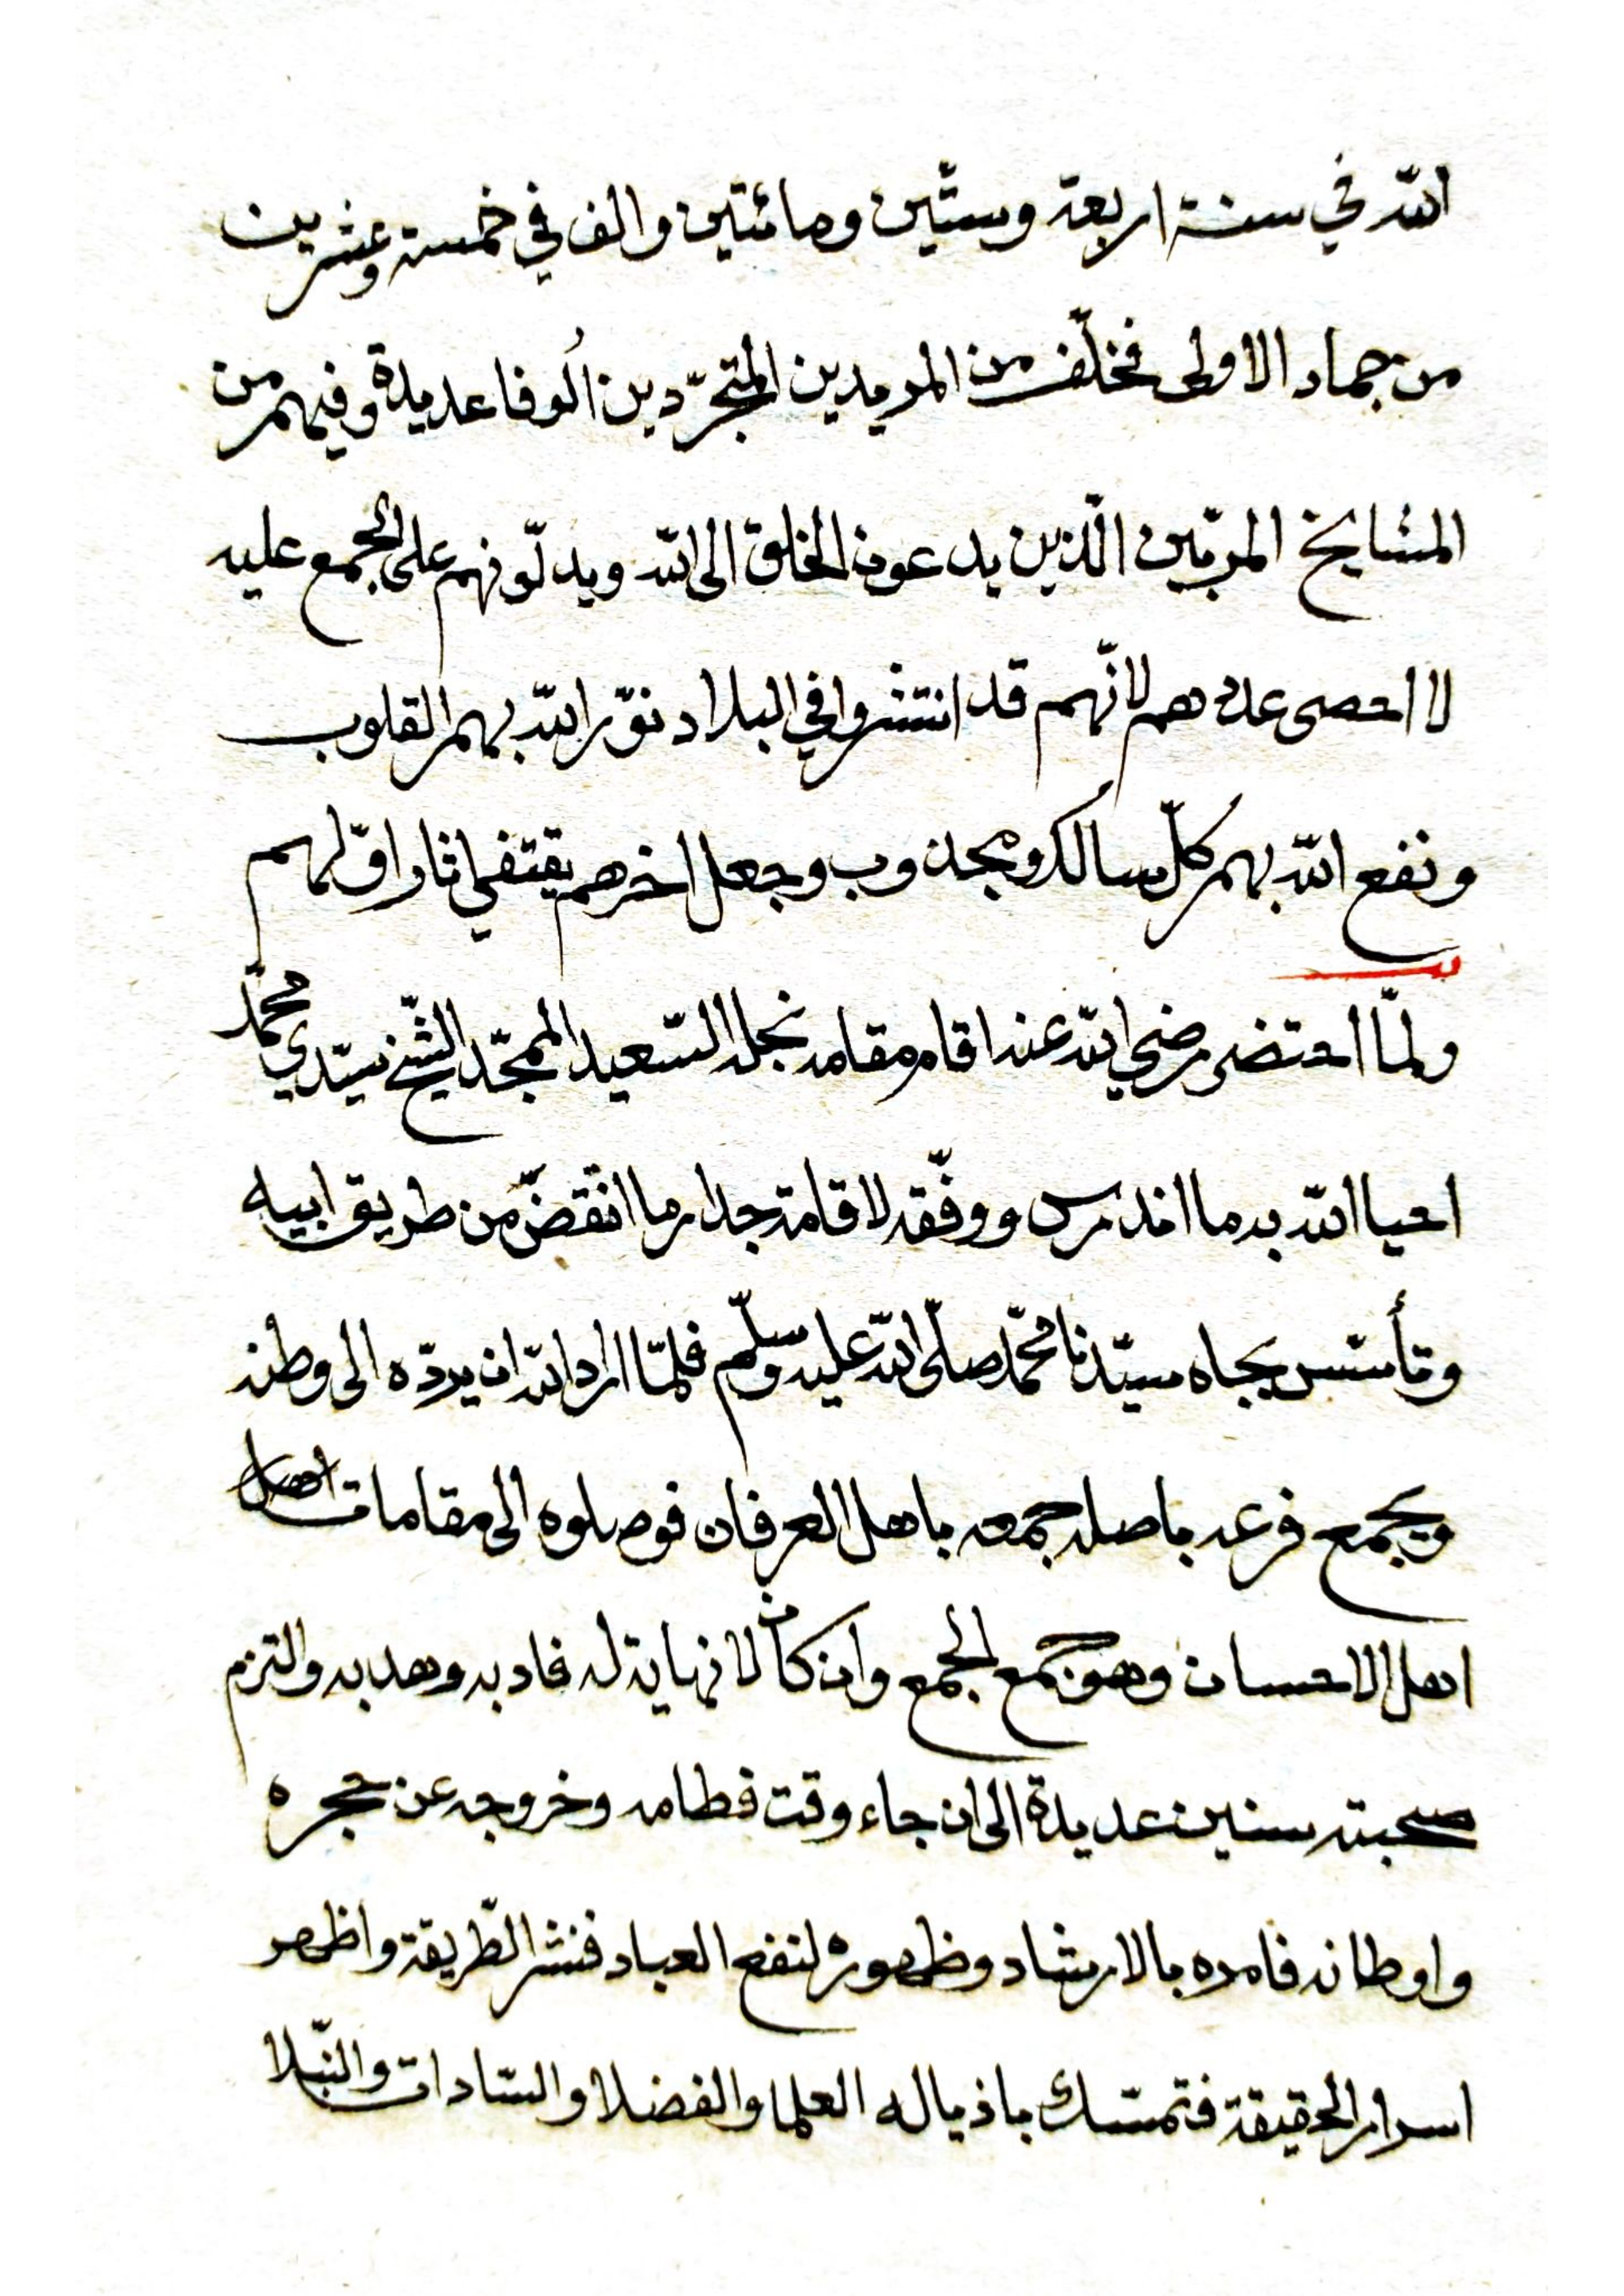 الله في سنة اربعة وستّين ومائتين والف في خمسة وعشرين
من جماد الاولى فخلّف من المريدين المتجرّدين اُلوفا عديدة وفيهم من
المشايخ المربّين الّذين يدعون الخلق الى الله ويدلّونهم على الجمع عليه
لا احصى عددهم لانّهم قد انتشروا في البلاد نوّر الله بهم القلوب
ونفع الله بهم كلّ سالك ومجذوب وجعل اخرهم يقتفي اثار اوّلهم
ولمّا احتضر رضي الله عنه اقام مقامه نجله السّعيد الممجّد الشّيخ سيّدي محمّد
احيا الله به ما اندرس ووفّقه لاقامة جدار ما انقضّ من طريق ابيه
وتأسّس بجاه سيّدنا محمّد صلّى الله عليه وسلّم فلمّا اراد الله ان يردّه الى وطنه
ويجمع فرعه باصله جمعه باهل العرفان فوصلوه الى مقامات اهل
اهل الاحسان وهو جمع الجمع وان كان لا نهاية له فادبه وهدبه والتزم
صحبته سنين عديدة الى ان جاء وقت فطامه وخروجه عن حجره
واوطانه فامده بالارشاد وظهوره لنفع العباد فنشر الطّريقة واظهر
اسرار الحقيقة فتمسّك باذياله العلما والفضلا والسّادات والنّبلا